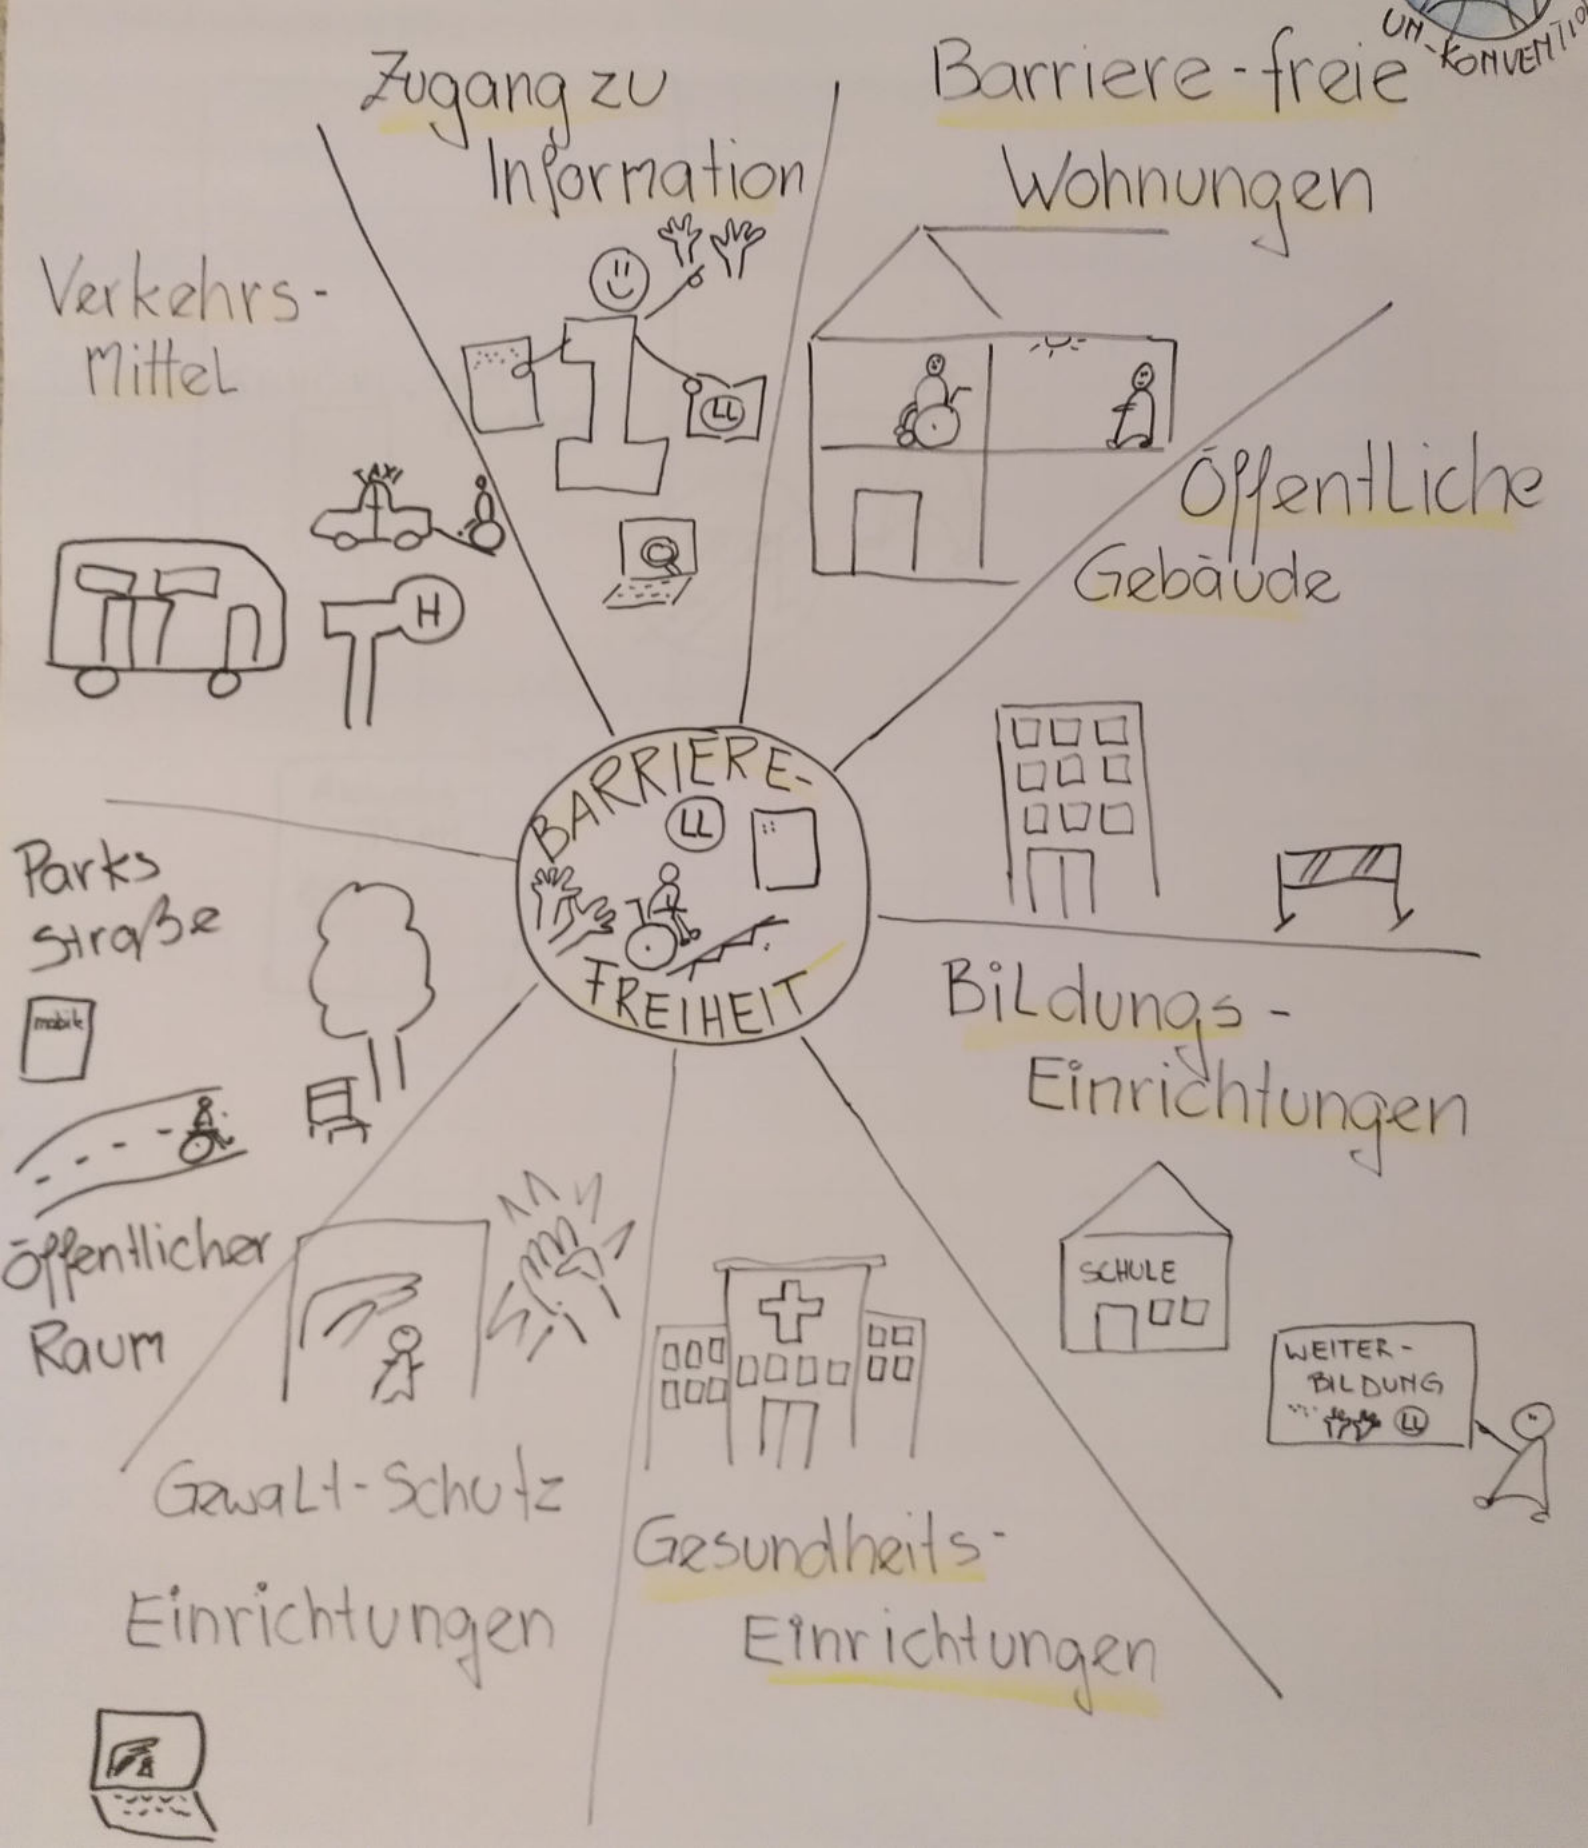 UN-KONVENTIO
Zugang zu
Information
LL
Barriere-freie
Wohnungen
Verkehrs-
Mittel
TAXI
H
Öffentliche
Gebäude
BARRIERE-
LL
FREIHEIT
Parks
Straße
mobil
Öffentlicher
Raum
Bildungs-
Einrichtungen
SCHULE
WEITER-
BILDUNG
LL
Gewalt-Schutz
Einrichtungen
Gesundheits-
Einrichtungen